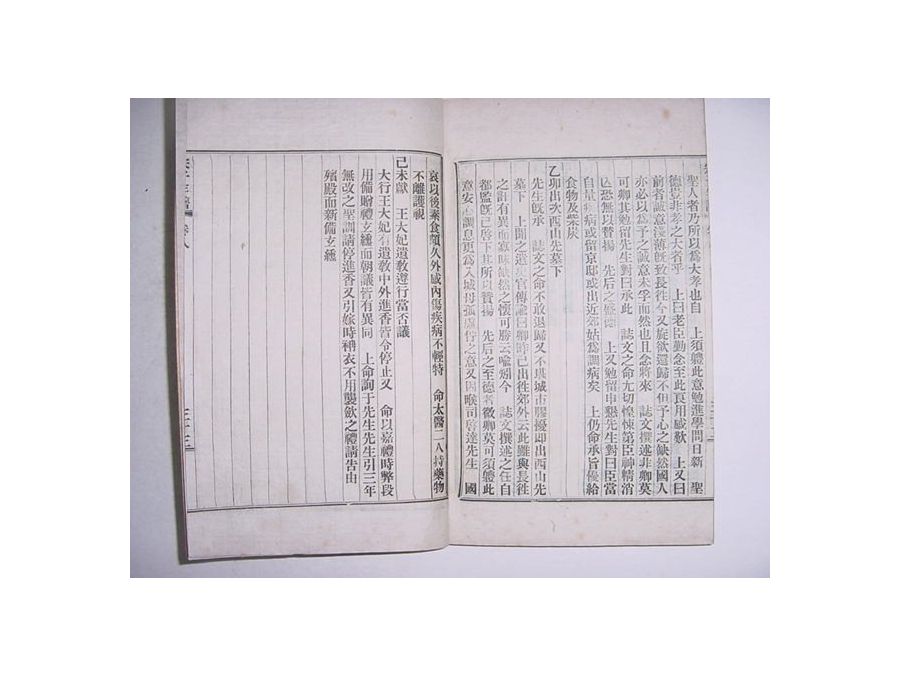 聖人者乃所以爲大孝也自 上須軆此意勉進學問日新 聖
德豈非孝之大者乎 上曰老臣勤念至此良用感歎 上又曰
前者誠意淺薄旣致長徃今又旋欲還歸不但予心之缺然國人
亦必以爲予之誠意未孚而然也且念將來 誌文撰述非卿莫
可卿其勉留先生對曰承此 誌文之命尤切惶悚第臣神精消
恐無以賛揚 先后之盛德 上又勉留申懇先生對曰臣當
自量疾病或留京邸或出近郊姑爲調病矣 上仍命承旨優給
食物及柴炭
乙卯出次西山先墓下
先生旣承 誌文之命不敢退歸又不堪城市膠擾卽出西山先
墓下 上聞之遣史官傳諭曰卿許已出徃郊外云此雖與長徃
之計有異而寡昧缺然之懷可勝云喩矧今 誌文撰述之任自
都監旣已啓下其所以賛揚 先后之至德者微卿莫可須軆此
意安心調息更爲入城毋孤虛佇之意又因喉司啓達先生 國
哀以後素食頗久外感內傷疾病不輕特 命太醫二人持藥物
不離護視
己未獻 王大妃遺敎遵行當否議
大行王大妃有遺敎中外進香皆令停止又 命以嘉禮時弊段
用備贈禮玄纁而朝議皆有異同 上命詢于先生先生引三年
無改之聖訓請停進香又引嫁時稱衣不用襲斂之禮請告由
殯殿而新備玄纁
卷八